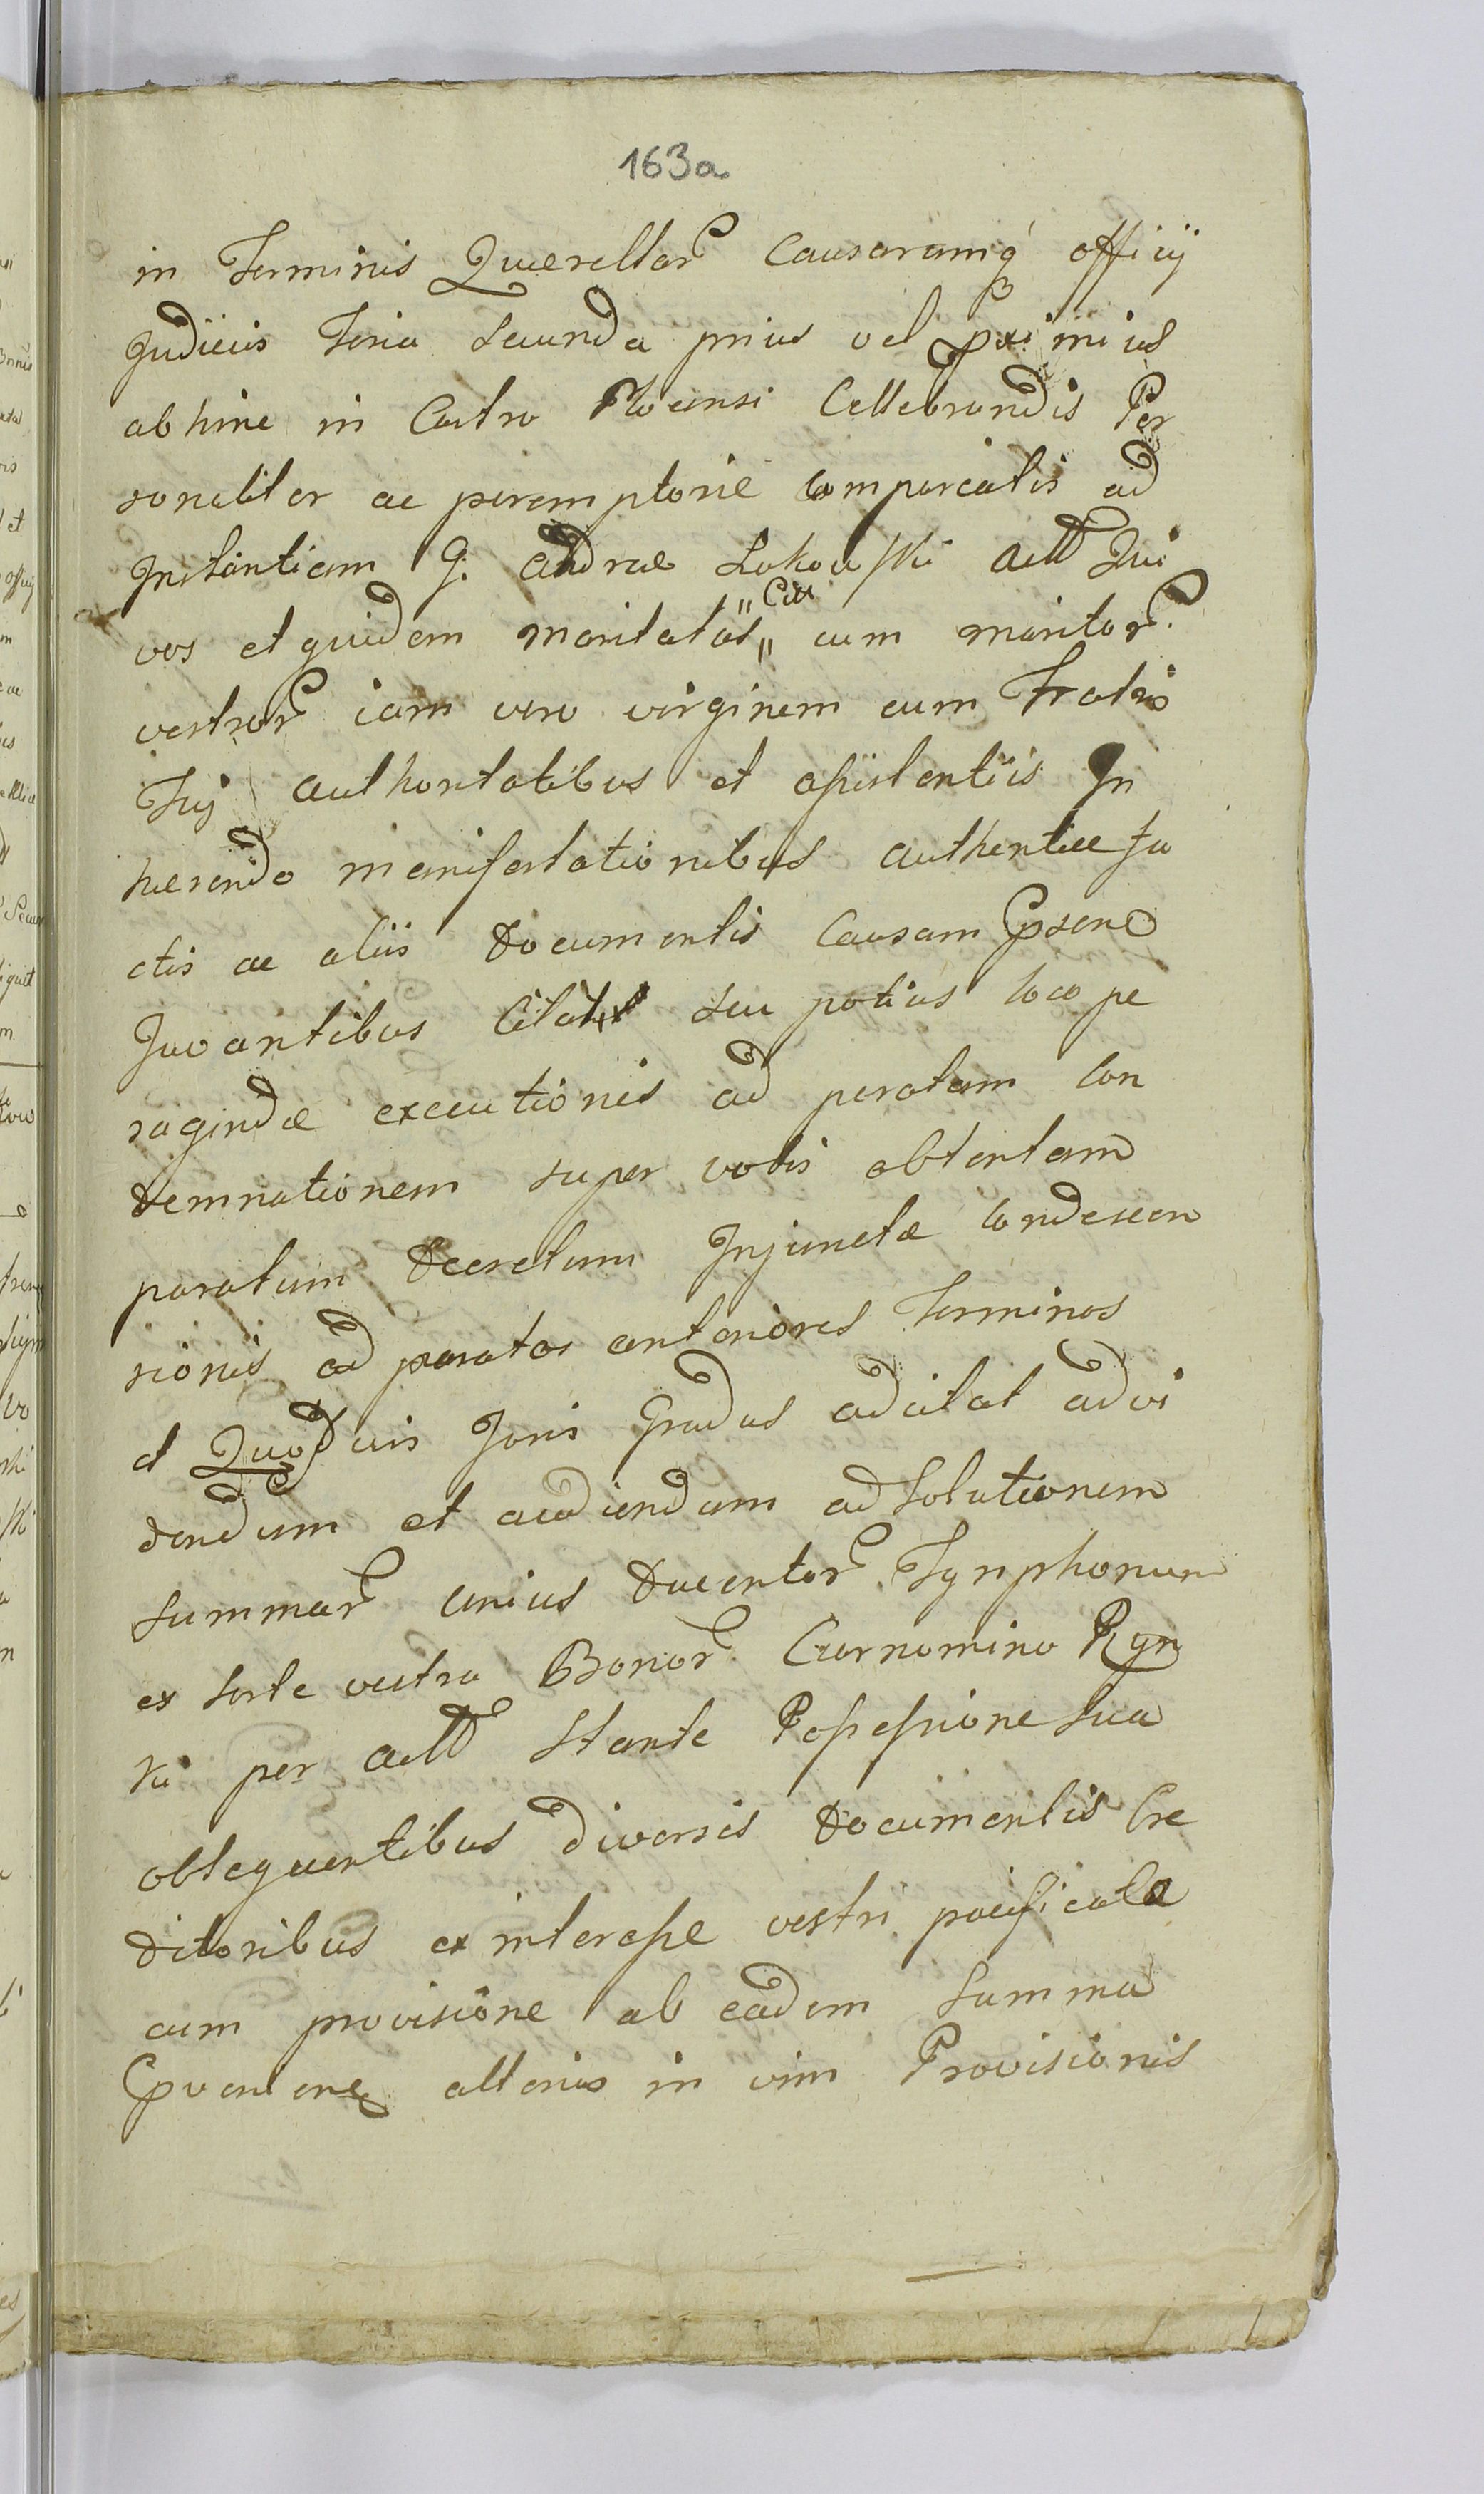 163a
in Terminis Querellar Causarumq́ officij
Judiciis Feria Secunda prius vel proximius
abhinc in Castro Plocensi Cellebrandis Per
sonaliter ac peremptorie compareatis ad
Instantiam G. Andreae Lukowski act Qui
vos et quidem maritatas cum maritor
vestror iam vero virginem cum Fratris
Tuj authoritatibus et assistentiis In
haerendo manifestationibus authentice fa
ctis ac aliis Documentis Causam psene
Juvantibus Citat seu potius loco pe
ragendae executionis ad peratam Con
demnationem super vobis obtentam
paratum Decretum Injunctae Condescen
sionis ad paratos anteriores Terminos
et Quod vis Juris Gradus adcitat ad vi
dendum et audiendum ad Solutionem
Summar unius Ducentor Tynphonum
ex sorte vestra Bonor Czarnomino Ryn
ki per act Stante Possessione sua
obloquentibus diversis Documentis Cre
ditoribus ex interesse vestri pacificata
cum provisione ab eadem Summa
proveniene alterius in vim Provisionis